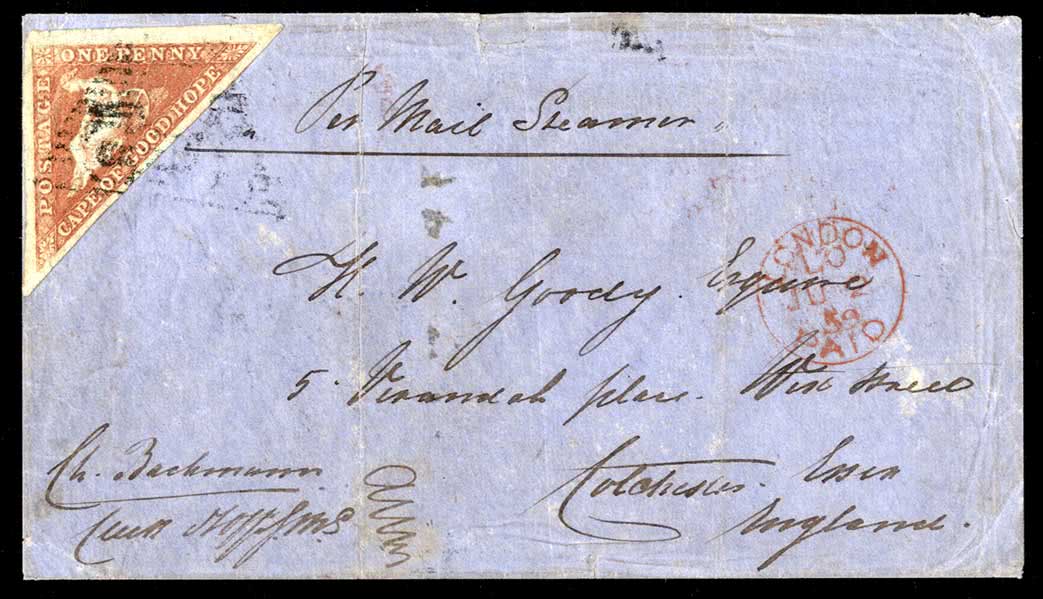 POSTAGE
ONE PENNY
CAPE OF GOOD HOPE
Per Mail Steamer
LONDON
LO
JU 2
59
PAID
H. W. Goody. Esquire
5. Verandah place. West Street
Colchester. Essex
England.
Ch. Bachmann